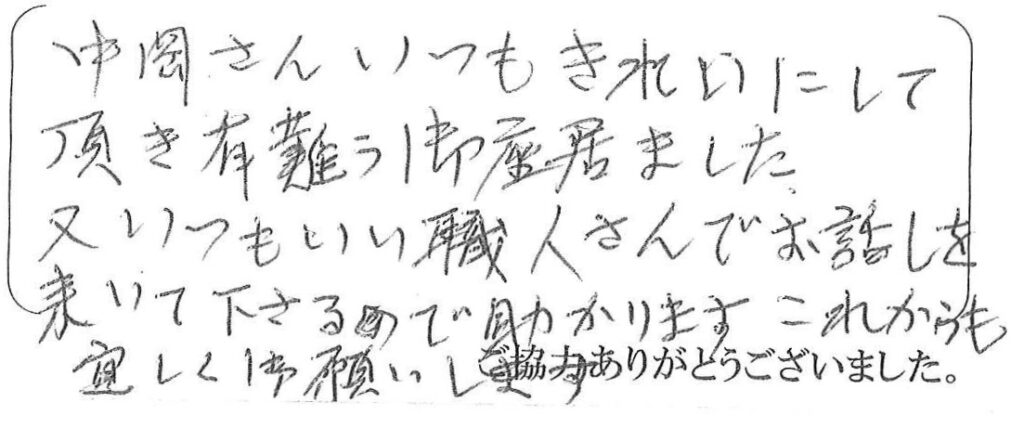 中岡さんいつもきれいにして
頂き有難う御座居ました
又いつもいい職人さんでお話しを
来いて下さるので助かります これからも
宜しく御願いします
ご協力ありがとうございました。